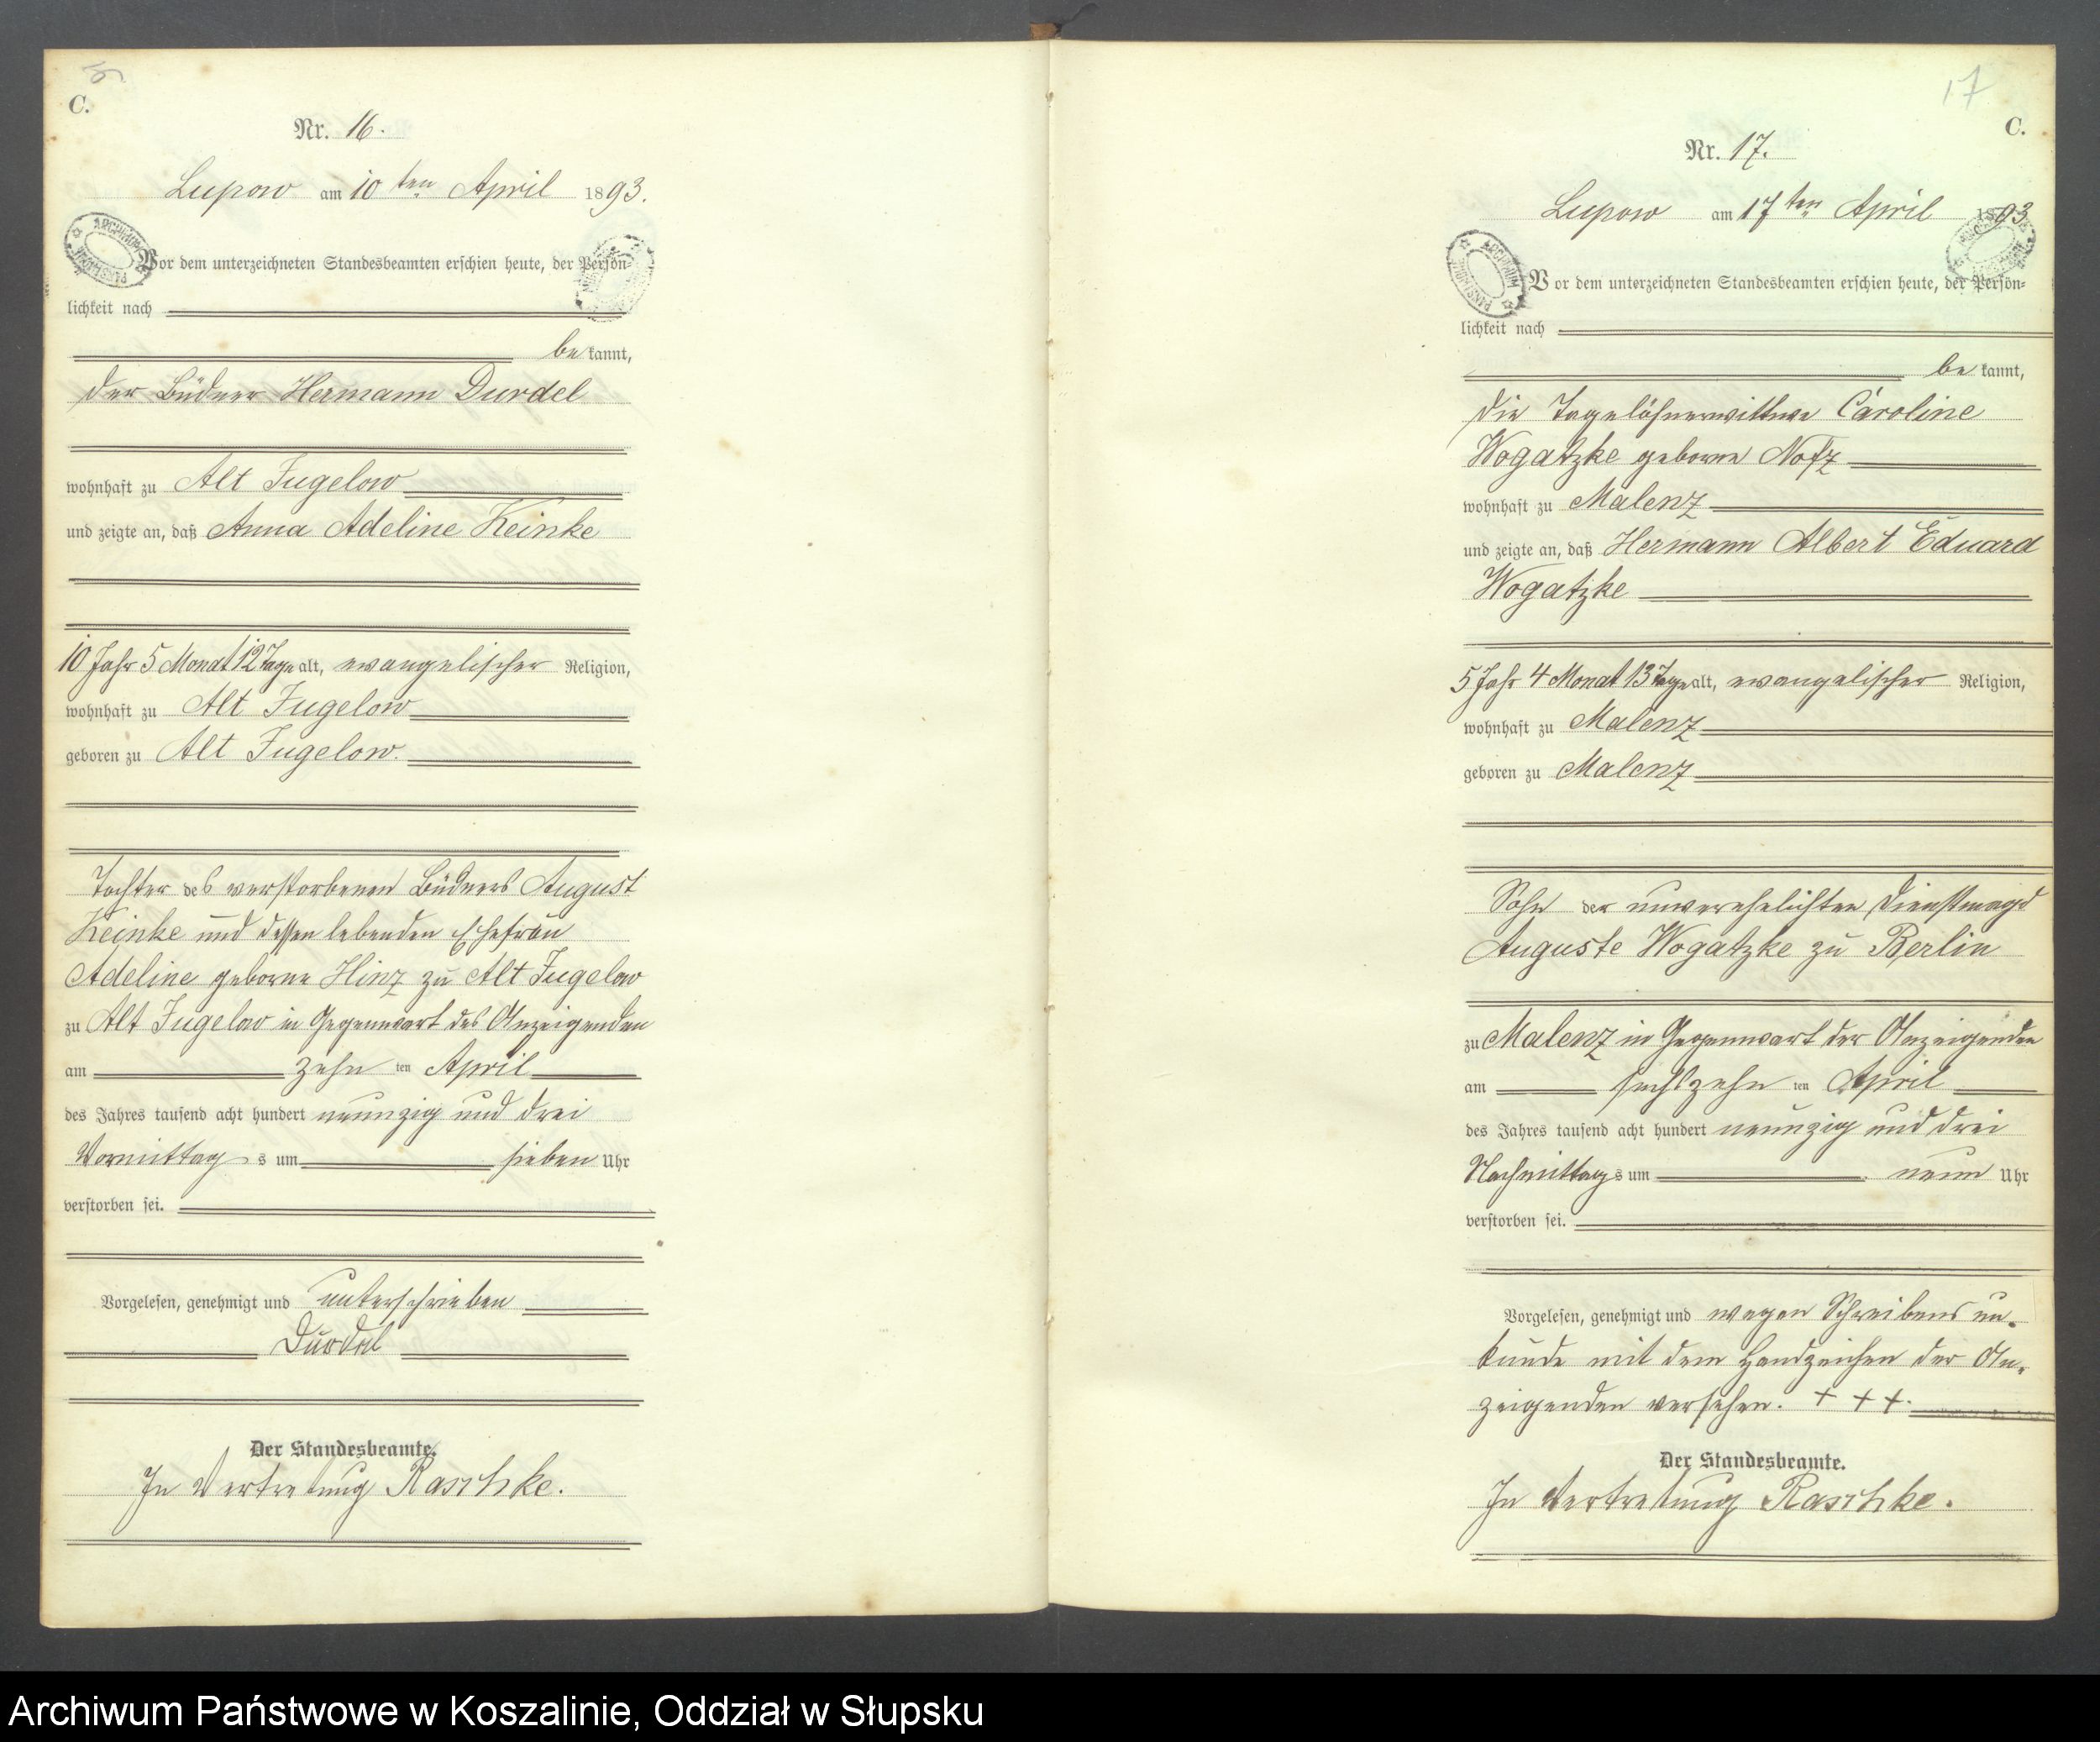 C.
Nr. 16.
Lupow am 10 ten April 1893.
Vor dem unterzeichneten Standesbeamten erschien heute, der Persön-
lichkeit nach
be kannt,
der Büdner Hermann Durdel
wohnhaft zu Alt Jugelow
und zeigte an, daß Anna Adeline Keinke
10 Jahr 5 Monat 12 Tage alt, evangelischer Religion,
wohnhaft zu Alt Jugelow
geboren zu Alt Jugelow.
Tochter des verstorbenen Büdners August
Keinke und dessen lebenden Ehefrau
Adeline geborne Hinz zu Alt Jugelow
zu Alt Jugelow in Gegenwart des Anzeigenden
am zehn ten April
des Jahres tausend acht hundert neunzig und drei
Vormittag s um sieben Uhr
verstorben sei.
Vorgelesen, genehmigt und unterschrieben
Durdel
Der Standesbeamte.
In Vertretung Raschke.
17
C.
Nr. 17.
Lupow am 17 ten April 1893
Vor dem unterzeichneten Standesbeamten erschien heute, der Persön-
lichkeit nach
be kannt,
die Tagelöhnerwittwe Caroline
Wogatzke geborne Notz
wohnhaft zu Malenz
und zeigte an, daß Hermann Albert Eduard
Wogatzke
5 Jahr 4 Monat 13 Tage alt, evangelischer Religion,
wohnhaft zu Malenz
geboren zu Malenz
Sohn der unverehelichten Dienstmagd
Auguste Wogatzke zu Berlin
zu Malenz in Gegenwart der Anzeigenden
am sechszehn ten April
des Jahres tausend acht hundert neunzig und drei
Nachmittag s um neun Uhr
verstorben sei.
Vorgelesen, genehmigt und wegen Schreibens un-
kunde mit dem Handzeichen der An-
zeigenden versehen. + + +.
Der Standesbeamte.
In Vertretung Raschke.
Archiwum Państwowe w Koszalinie, Oddział w Słupsku